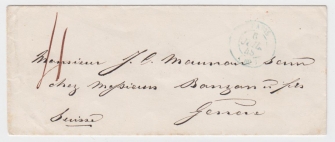 Monsieur J. C. Maunoir
chez Messieurs Banzan & fils
Genève
Suisse